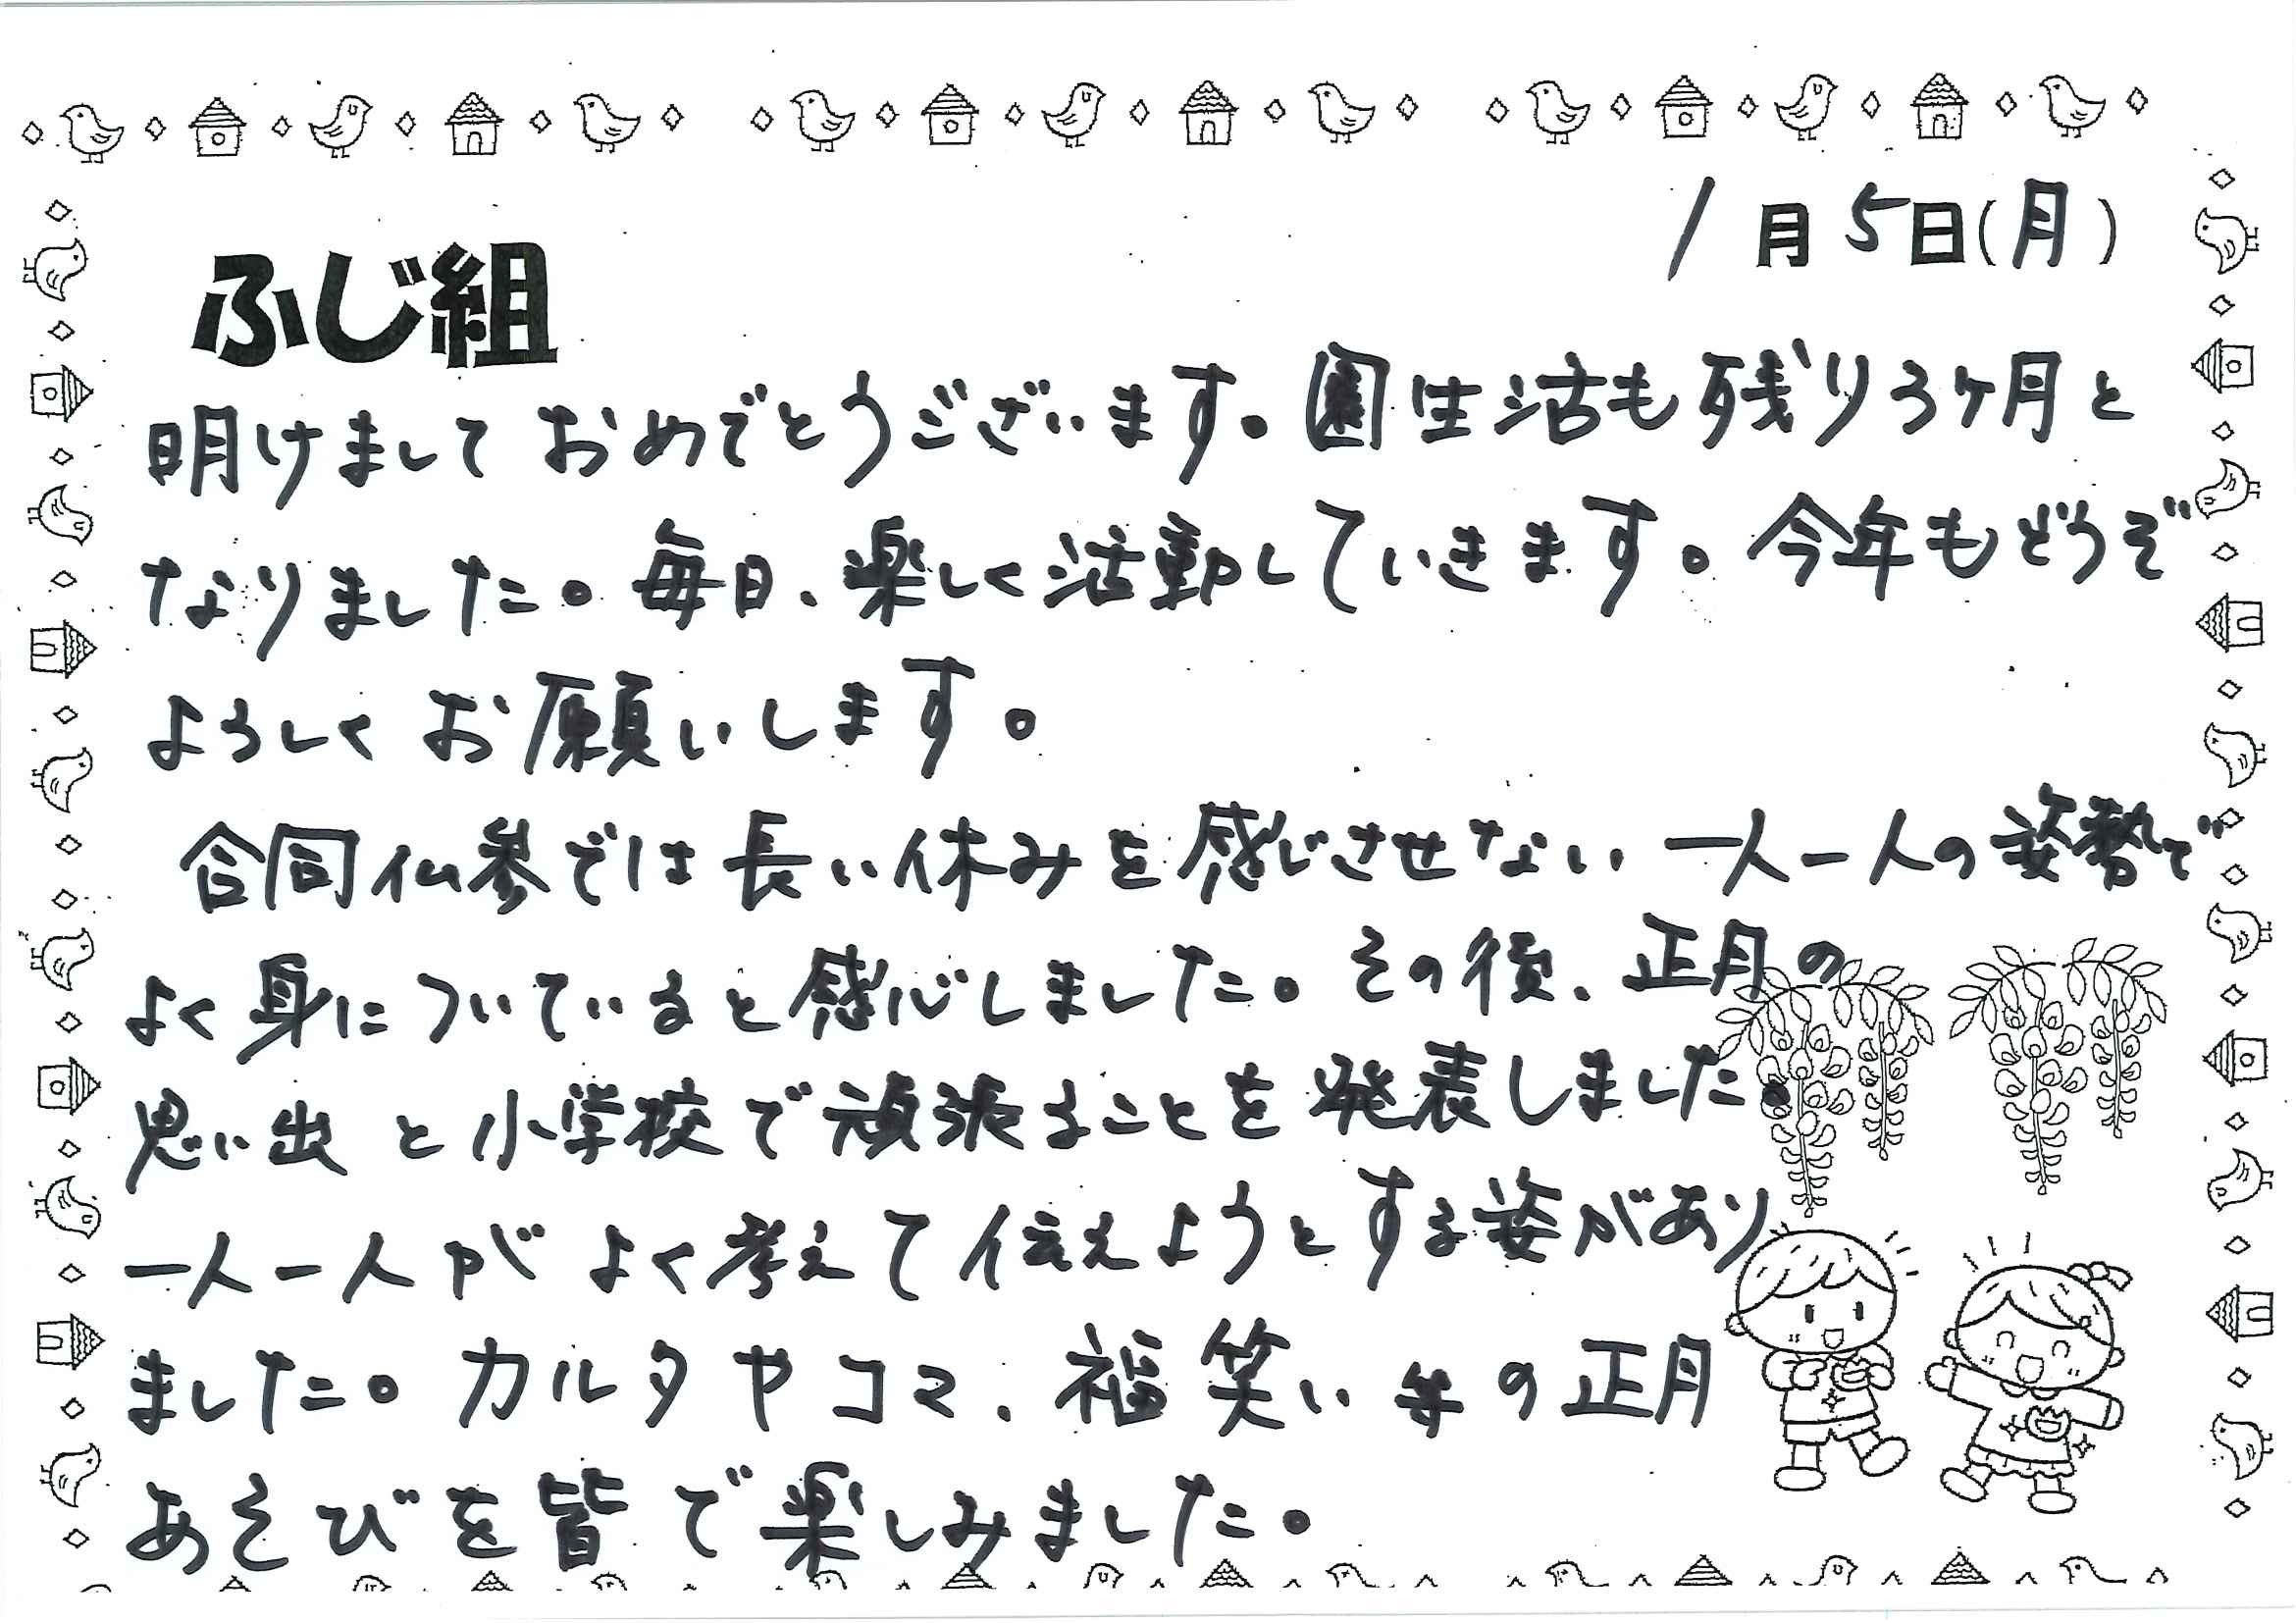 1月5日(月)
ふじ組
明けましておめでとうございます。園生活も残り3ヶ月と
なりました。毎日、楽しく活動していきます。今年もどうぞ
よろしくお願いします。
合同仏参では長い休みを感じさせない一人一人の姿勢で
よく身についていると感心しました。その後、正月の
思い出と小学校で頑張ることを発表しました。
一人一人がよく考えて伝えようとする姿があり
ました。カルタやコマ、福笑い等の正月
あそびを皆で楽しみました。